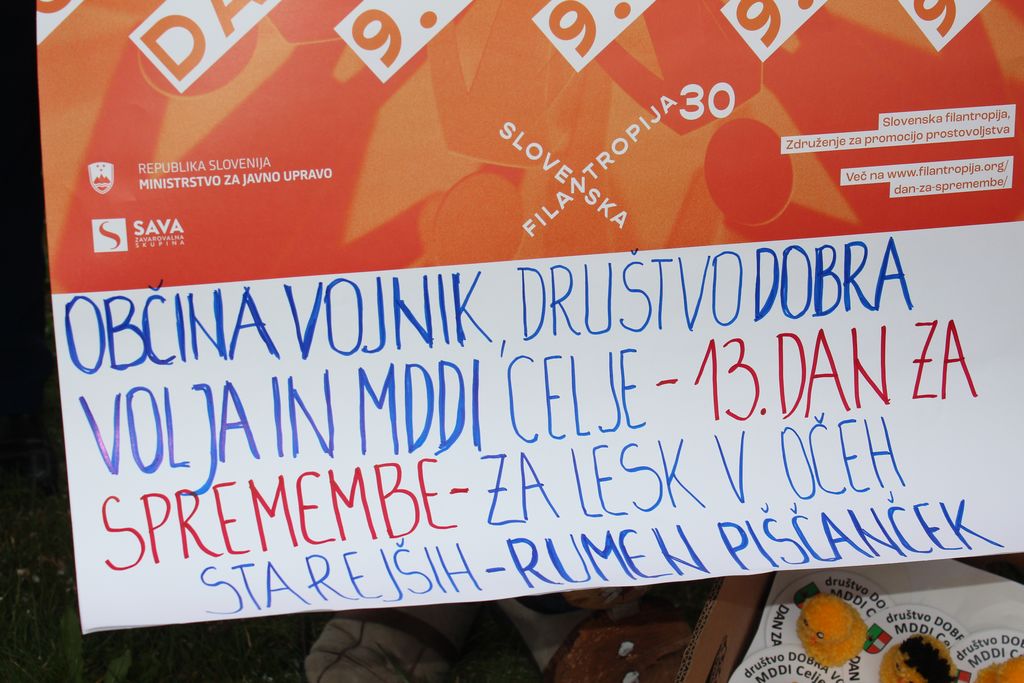 DA
9.
9.
9.
9
SLOVENSKA
FILANTROPIJA 30
Slovenska filantropija,
Združenje za promocijo prostovoljstva
Več na www.filantropija.org/
dan-za-spremembe/
REPUBLIKA SLOVENIJA
MINISTRSTVO ZA JAVNO UPRAVO
S SAVA
ZAVAROVALNA
SKUPINA
OBČINA VOJNIK, DRUŠTVO DOBRA
VOLJA IN MDDI CELJE - 13. DAN ZA
SPREMEMBE - ZA LESK V OČEH
STAREJŠIH - RUMEN PIŠČANČEK
društvo DO
MDDI C
DAN ZA
društvo DOBR
MDDI
DAN
društvo DOBRA VO
MDDI Celje